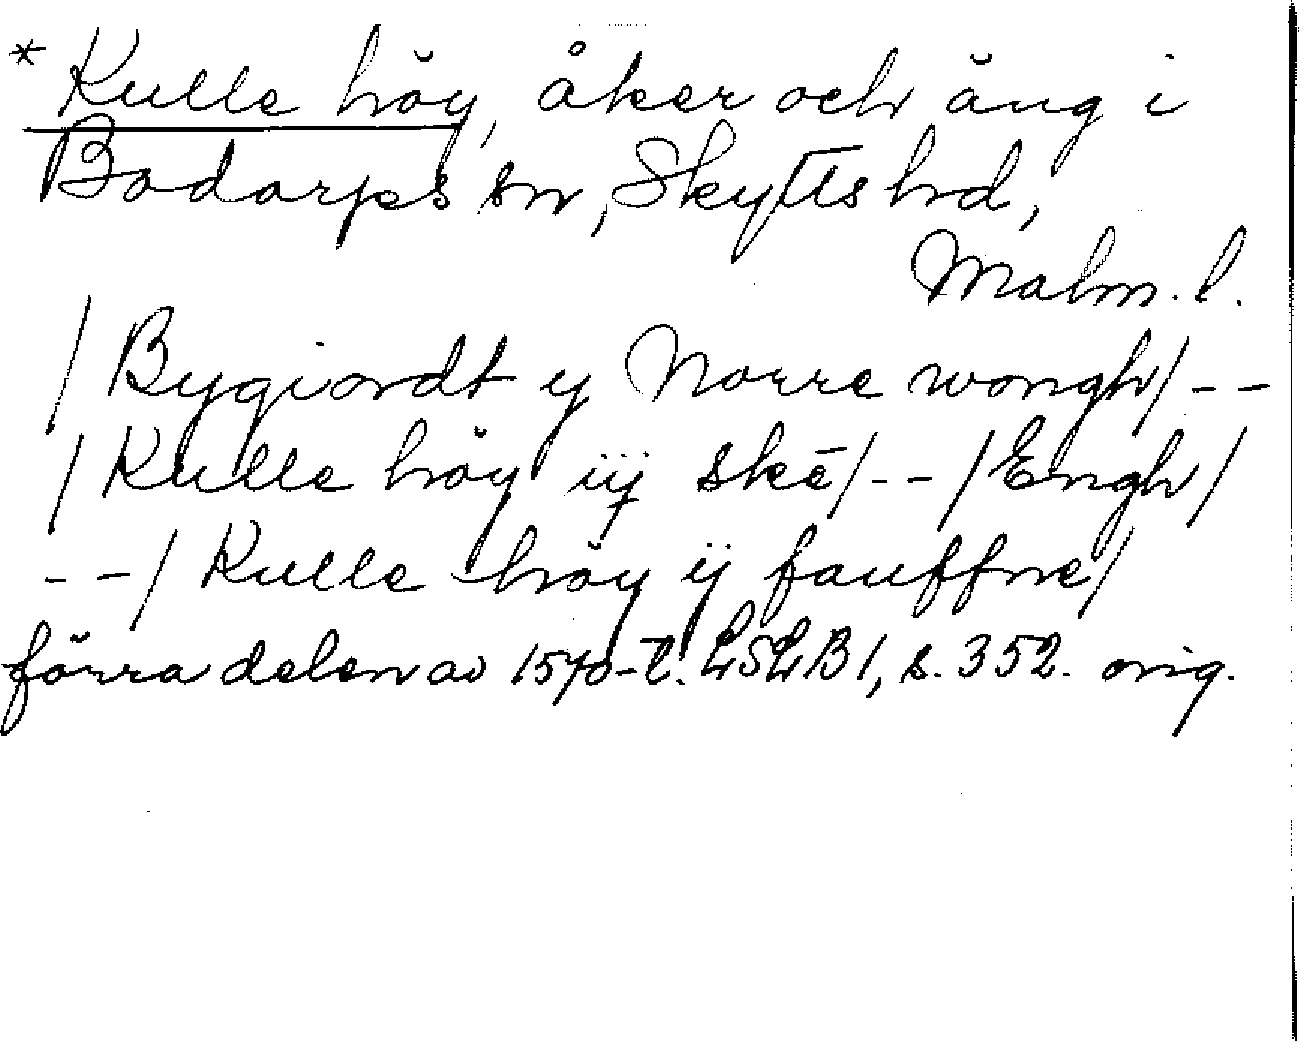 * Kulle höy, åker och äng i
Bodarps sn, Skytts hd,
Malm. l.
/ Bygiordt y Norre wongh/ --
/ Kulle höy iij skē/ -- / Engh/
-- / Kulle höy ij fauffne/
förra delen av 1570-t. LSLB 1, s. 352. orig.